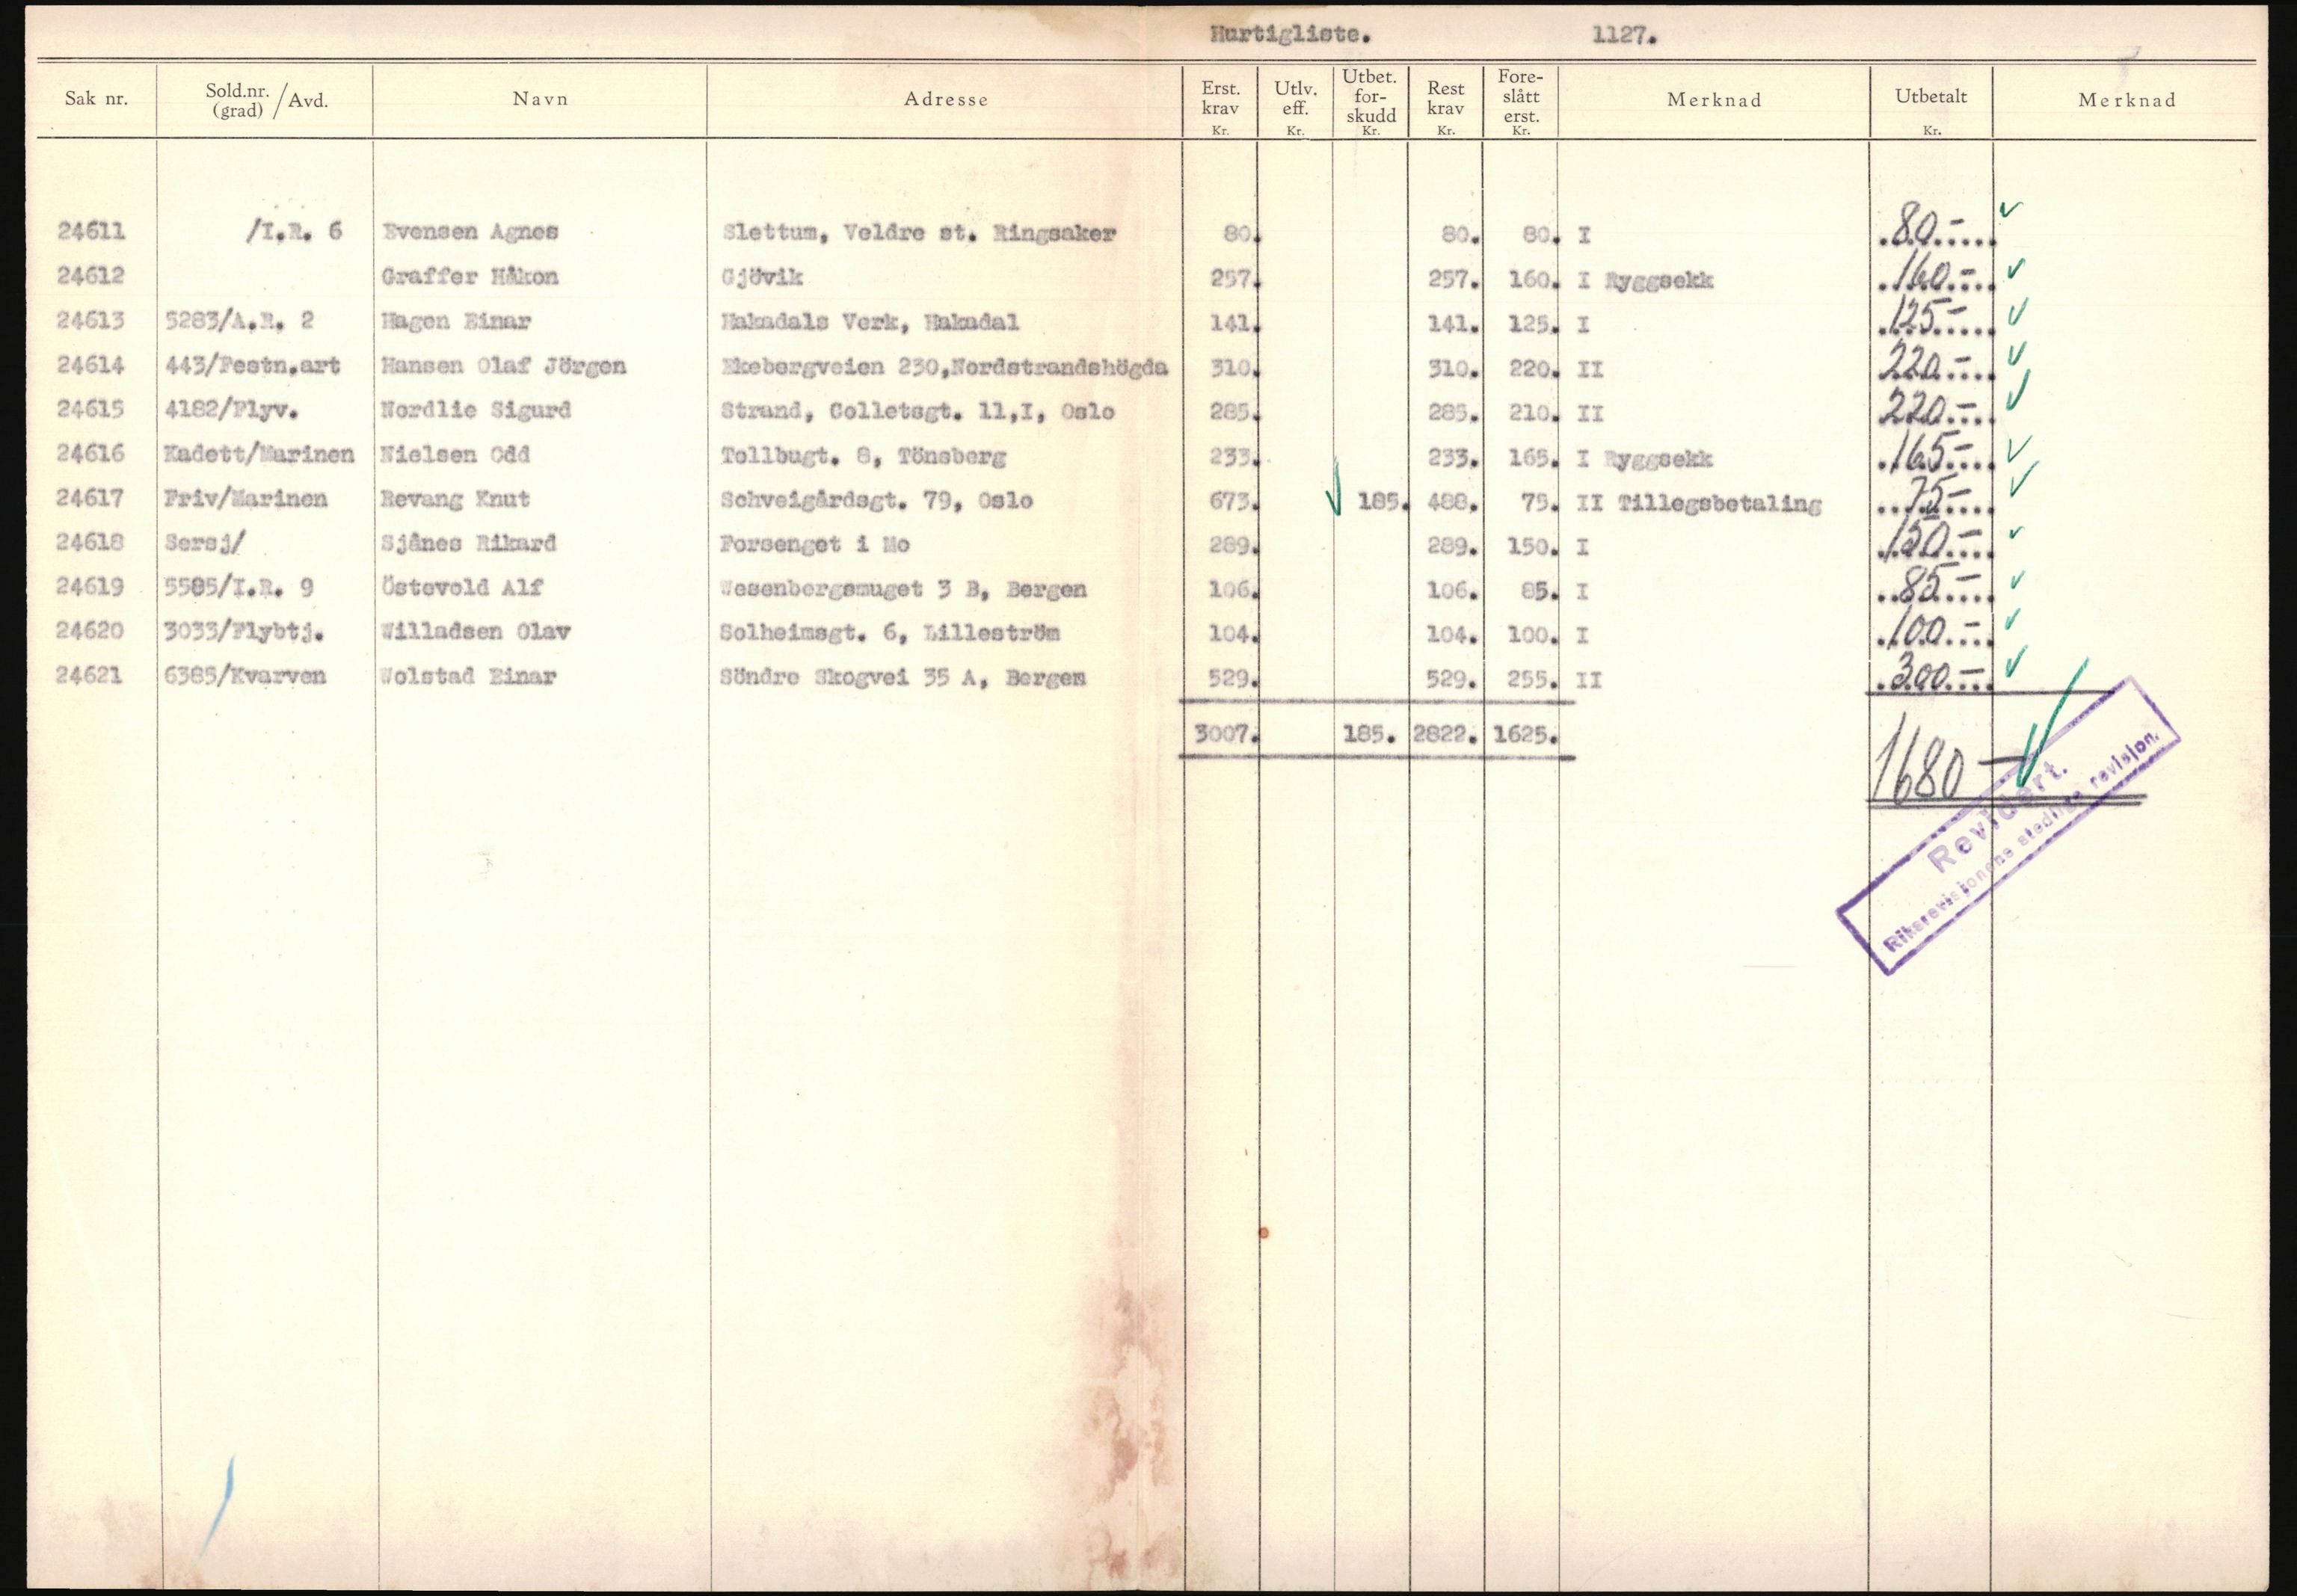 Hurtigliste. 1127.
Sak nr. Sold.nr. (grad) / Avd. Navn Adresse Erst. krav Kr. Utlv. eff. Kr. Utbet. for- skudd Kr. Rest krav Kr. Fore- slått erst. Kr. Merknad Utbetalt Kr. Merknad
24611 /I.R. 6 Evensen Agnes Slettum, Veldre st. Ringsaker 80. 80. 80. I 80.-
24612 Graffer Håkon Gjövik 257. 257. 160. I Ryggsekk 160.-
24613 5283/A.R. 2 Hagen Einar Hakadals Verk, Hakadal 141. 141. 125. I 125-
24614 443/Festn.art Hansen Olaf Jörgen Ekebergveien 230,Nordstrandshögda 310. 310. 220. II 220.-
24615 4182/Flyv. Nordlie Sigurd Strand, Colletsgt. 11,I, Oslo 285. 285. 210. II 220.-
24616 Kadett/Marinen Nielsen Odd Tollbugt. 8, Tönsberg 233. 233. 165. I Ryggsekk 165-
24617 Friv/Marinen Revang Knut Schveigårdsgt. 79, Oslo 673. 185. 488. 75. II Tillegsbetaling 75-
24618 Sersj/ Sjånes Rikard Forsenget i Mo 289. 289. 150. I 150.-
24619 5585/I.R. 9 Östevold Alf Wesenbergsmuget 3 B, Bergen 106. 106. 85. I 85-
24620 3033/Flybtj. Willadsen Olav Solheimsgt. 6, Lilleström 104. 104. 100. I 100.-
24621 6385/Kvarven Wolstad Einar Söndre Skogvei 35 A, Bergen 529. 529. 255. II 300.-
3007. 185. 2822. 1625. 1680-
Revidert.
Riksrevisjonens stedlige revisjon.